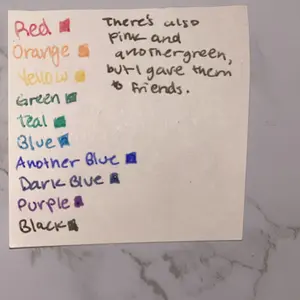 Red
Orange
Yellow
Green
Teal
Blue
Another Blue
Dark Blue
Purple
Black
There's also
pink and
another green,
but I gave them
to friends.